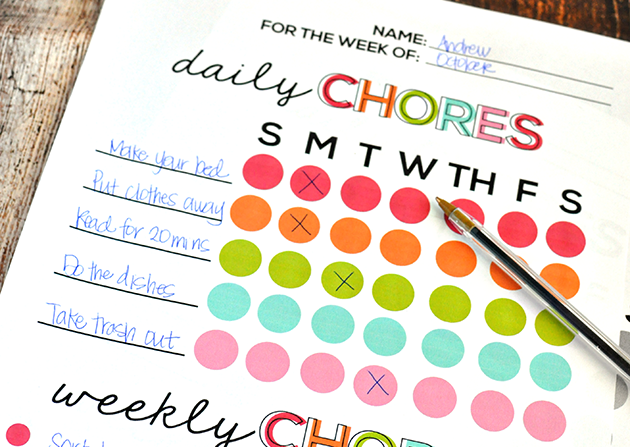 NAME: Andrew
FOR THE WEEK OF: October
daily CHORES
S M T W TH F S
Make your bed
Put clothes away
Read for 20 mins
Do the dishes
Take trash out
weekly CHO